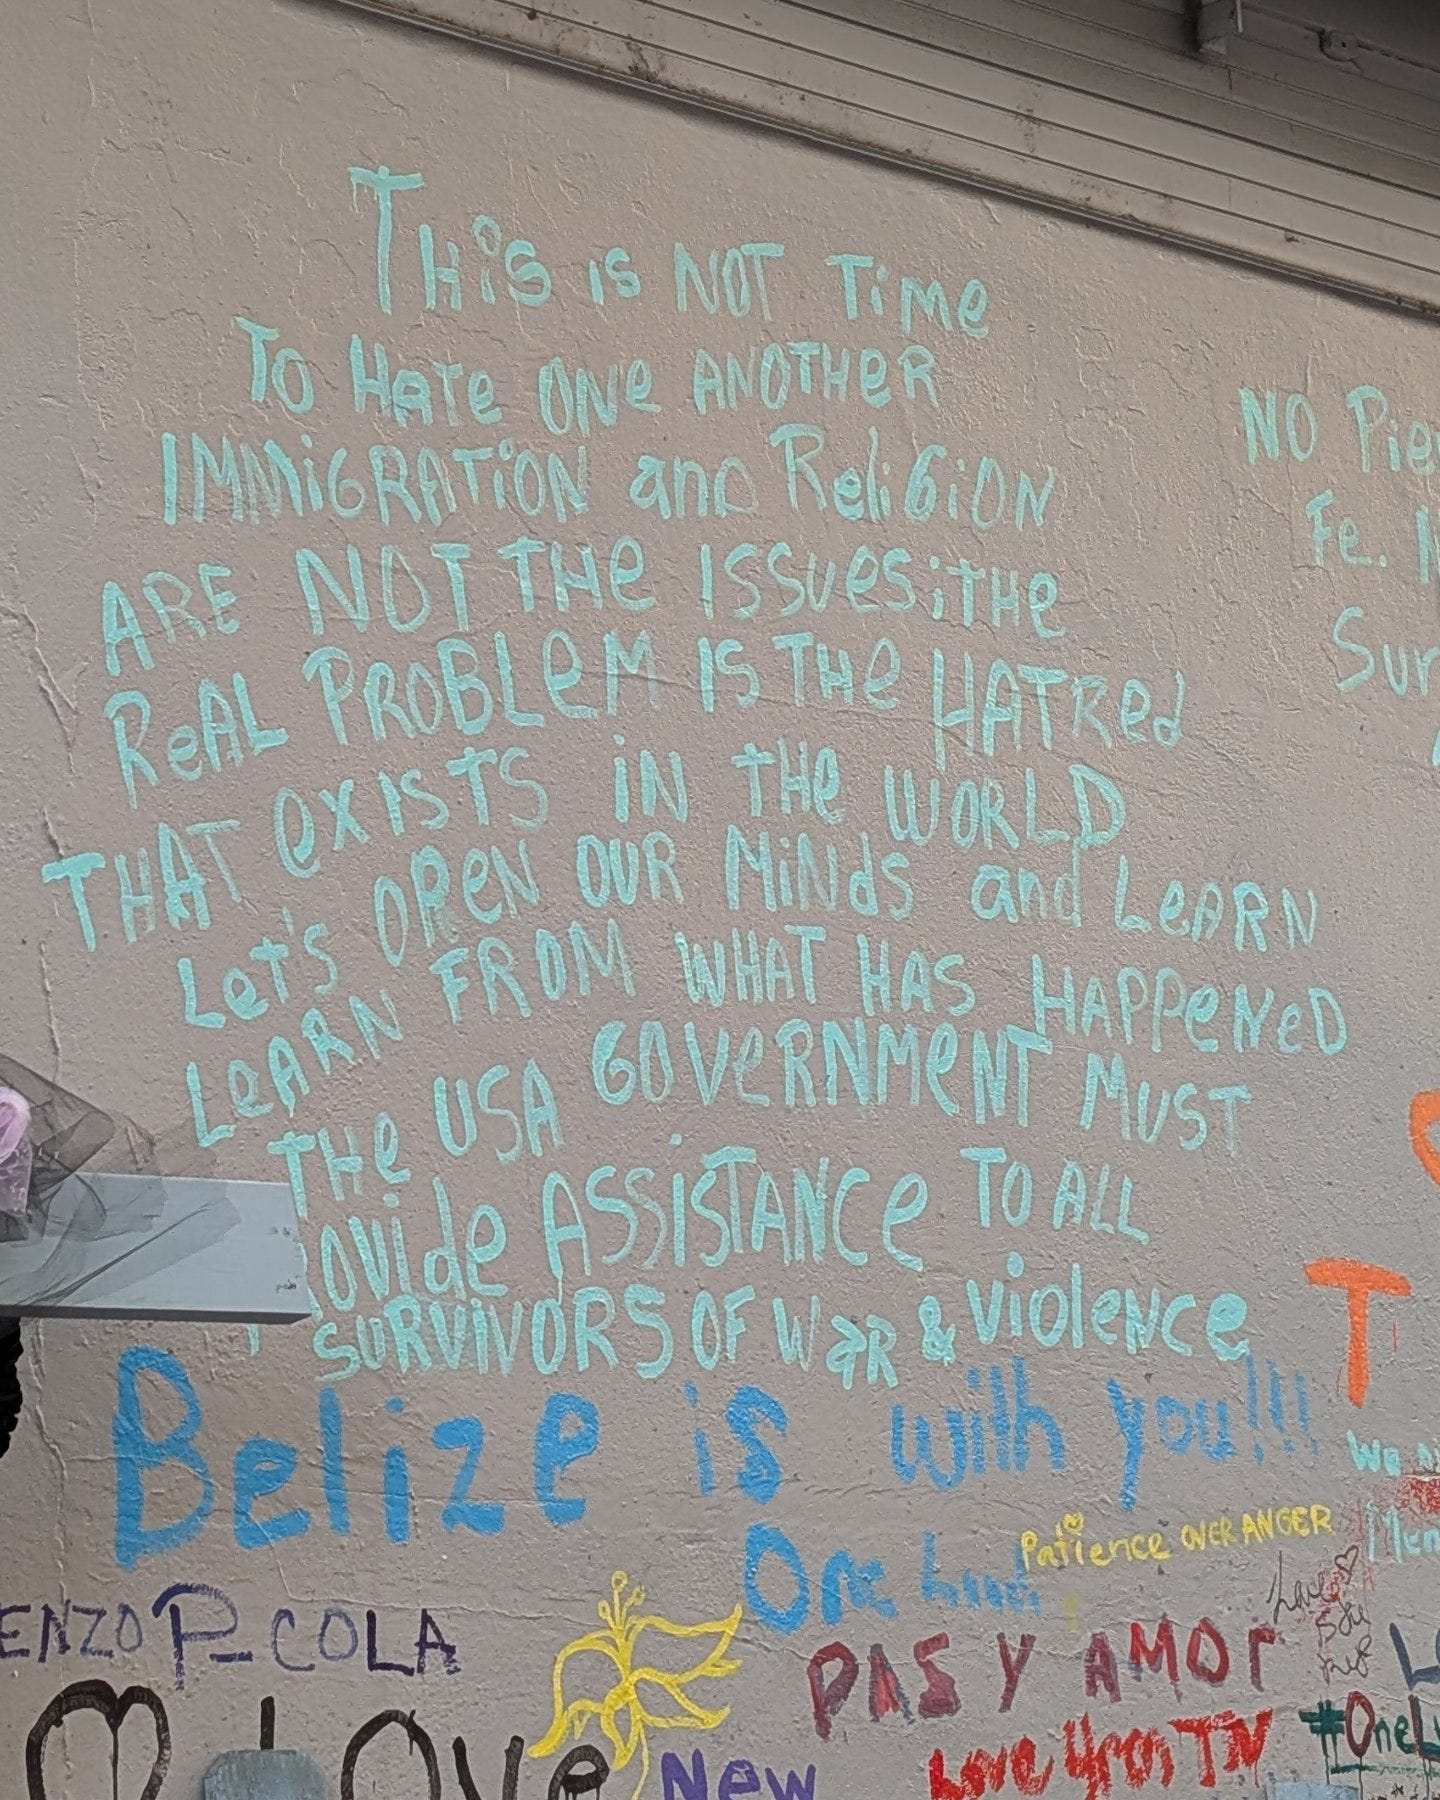 THis is NOT Time
TO HATe ONe ANOTHeR
IMMiGRATiON and ReliGiON
ARE NOT THe ISSUes; THe
ReAL PROBLeM IS THe HATRed
THAT exISTS iN THe WORLD
LeT'S OPeN OUR MiNdS and LeARN
LeARN FROM WHAT HAS HAPPeNeD
THe USA GOVeRNMeNT MUST
ovide ASSiSTANCe TO ALL
SURViVORS OF WaR & violeNce
NO
Fe.
Belize is with you!!!
One
Patience OVER ANGER
ENZO P-COLA
PAS Y AMOr
Love
Love
New
T